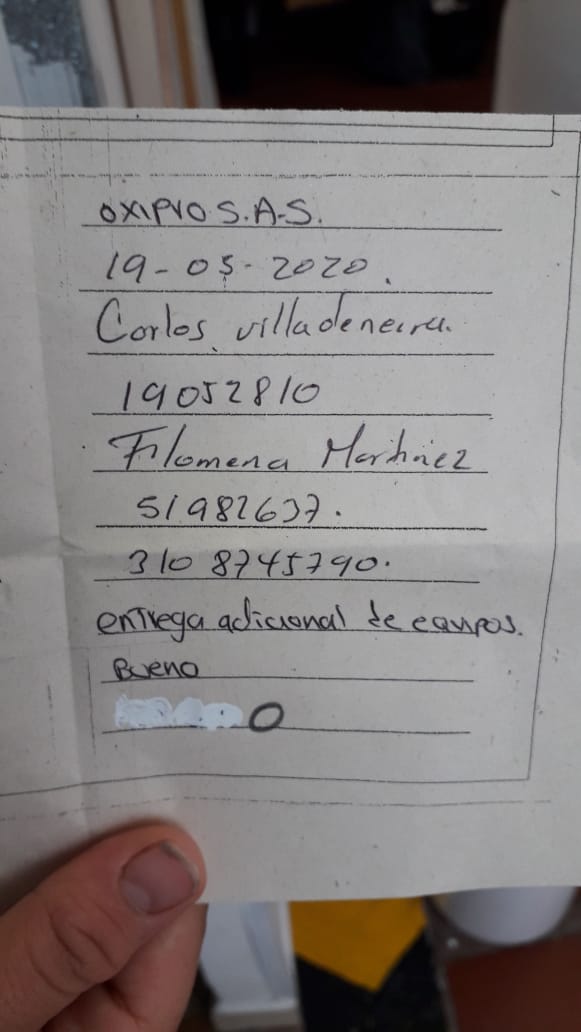 OXIPRO S.A.S.
19-05-2020.
Carlos villadeneira.
19052810
Filomena Martinez
51982637.
310 8745790.
entrega adicional de equipos.
Bueno
O